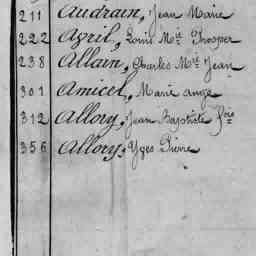 211 Audrain, Jean Marie
222 Avril, Louis Mie Prosper
238 Allain, Charles Mie Jean
301 Amicel, Marie ange
312 Allory, Jean Baptiste fois
356 Allory, Yves Pierre